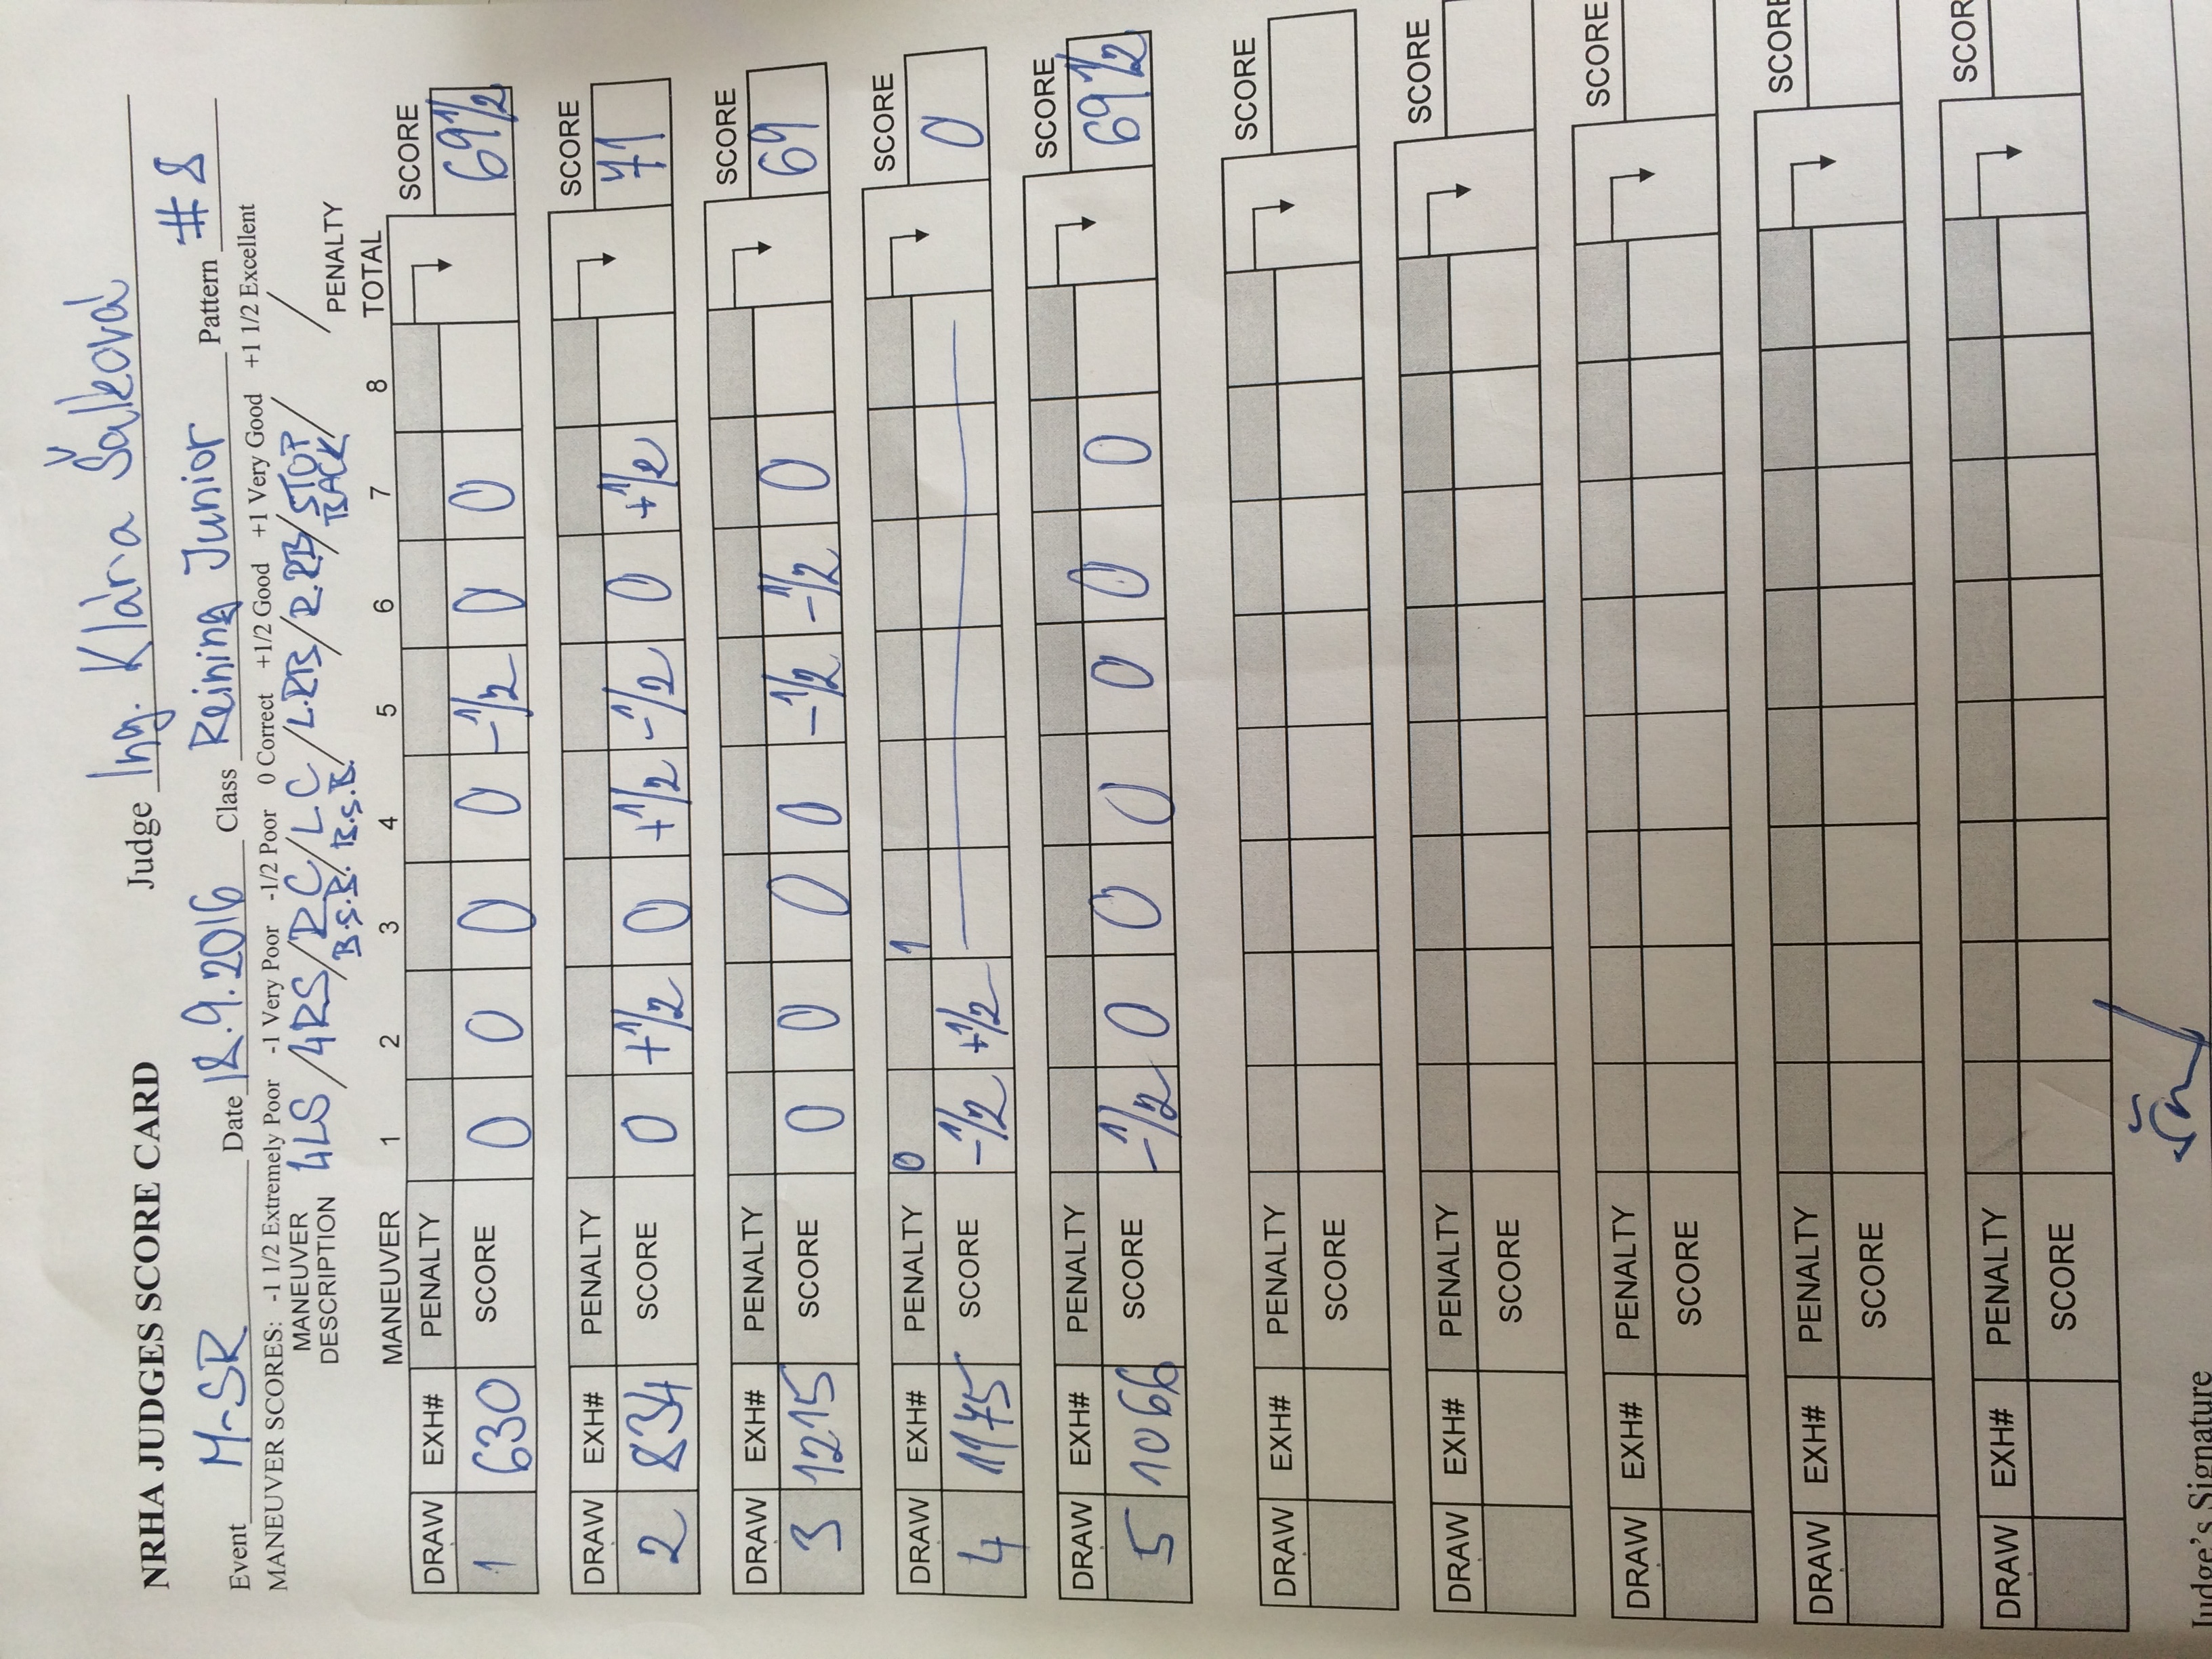 NRHA JUDGES SCORE CARD Judge Ing. Klára Šalková
Event M-SR Date 18.9.2016 Class Reining Junior Pattern #8
MANEUVER SCORES: -1 1/2 Extremely Poor -1 Very Poor -1/2 Poor 0 Correct +1/2 Good +1 Very Good +1 1/2 Excellent
MANEUVER DESCRIPTION 4LS / 4RS / RC B.S.B. / LC B.S.B. / L.RB / R.RB / STOP BACK /
MANEUVER 1 2 3 4 5 6 7 8 PENALTY TOTAL
DRAW EXH# PENALTY SCORE
1 630 SCORE 0 0 0 0 -1/2 0 0 69 1/2
DRAW EXH# PENALTY SCORE
2 834 SCORE 0 +1/2 0 +1/2 -1/2 0 +1/2 71
DRAW EXH# PENALTY SCORE
3 1215 SCORE 0 0 0 0 -1/2 -1/2 0 69
DRAW EXH# PENALTY 0 1 SCORE
4 1175 SCORE -1/2 +1/2 0
DRAW EXH# PENALTY SCORE
5 1066 SCORE -1/2 0 0 0 0 0 0 69 1/2
DRAW EXH# PENALTY SCORE
SCORE
DRAW EXH# PENALTY SCORE
SCORE
DRAW EXH# PENALTY SCORE
SCORE
DRAW EXH# PENALTY SCORE
SCORE
DRAW EXH# PENALTY SCOR
SCORE
Judge's Signature